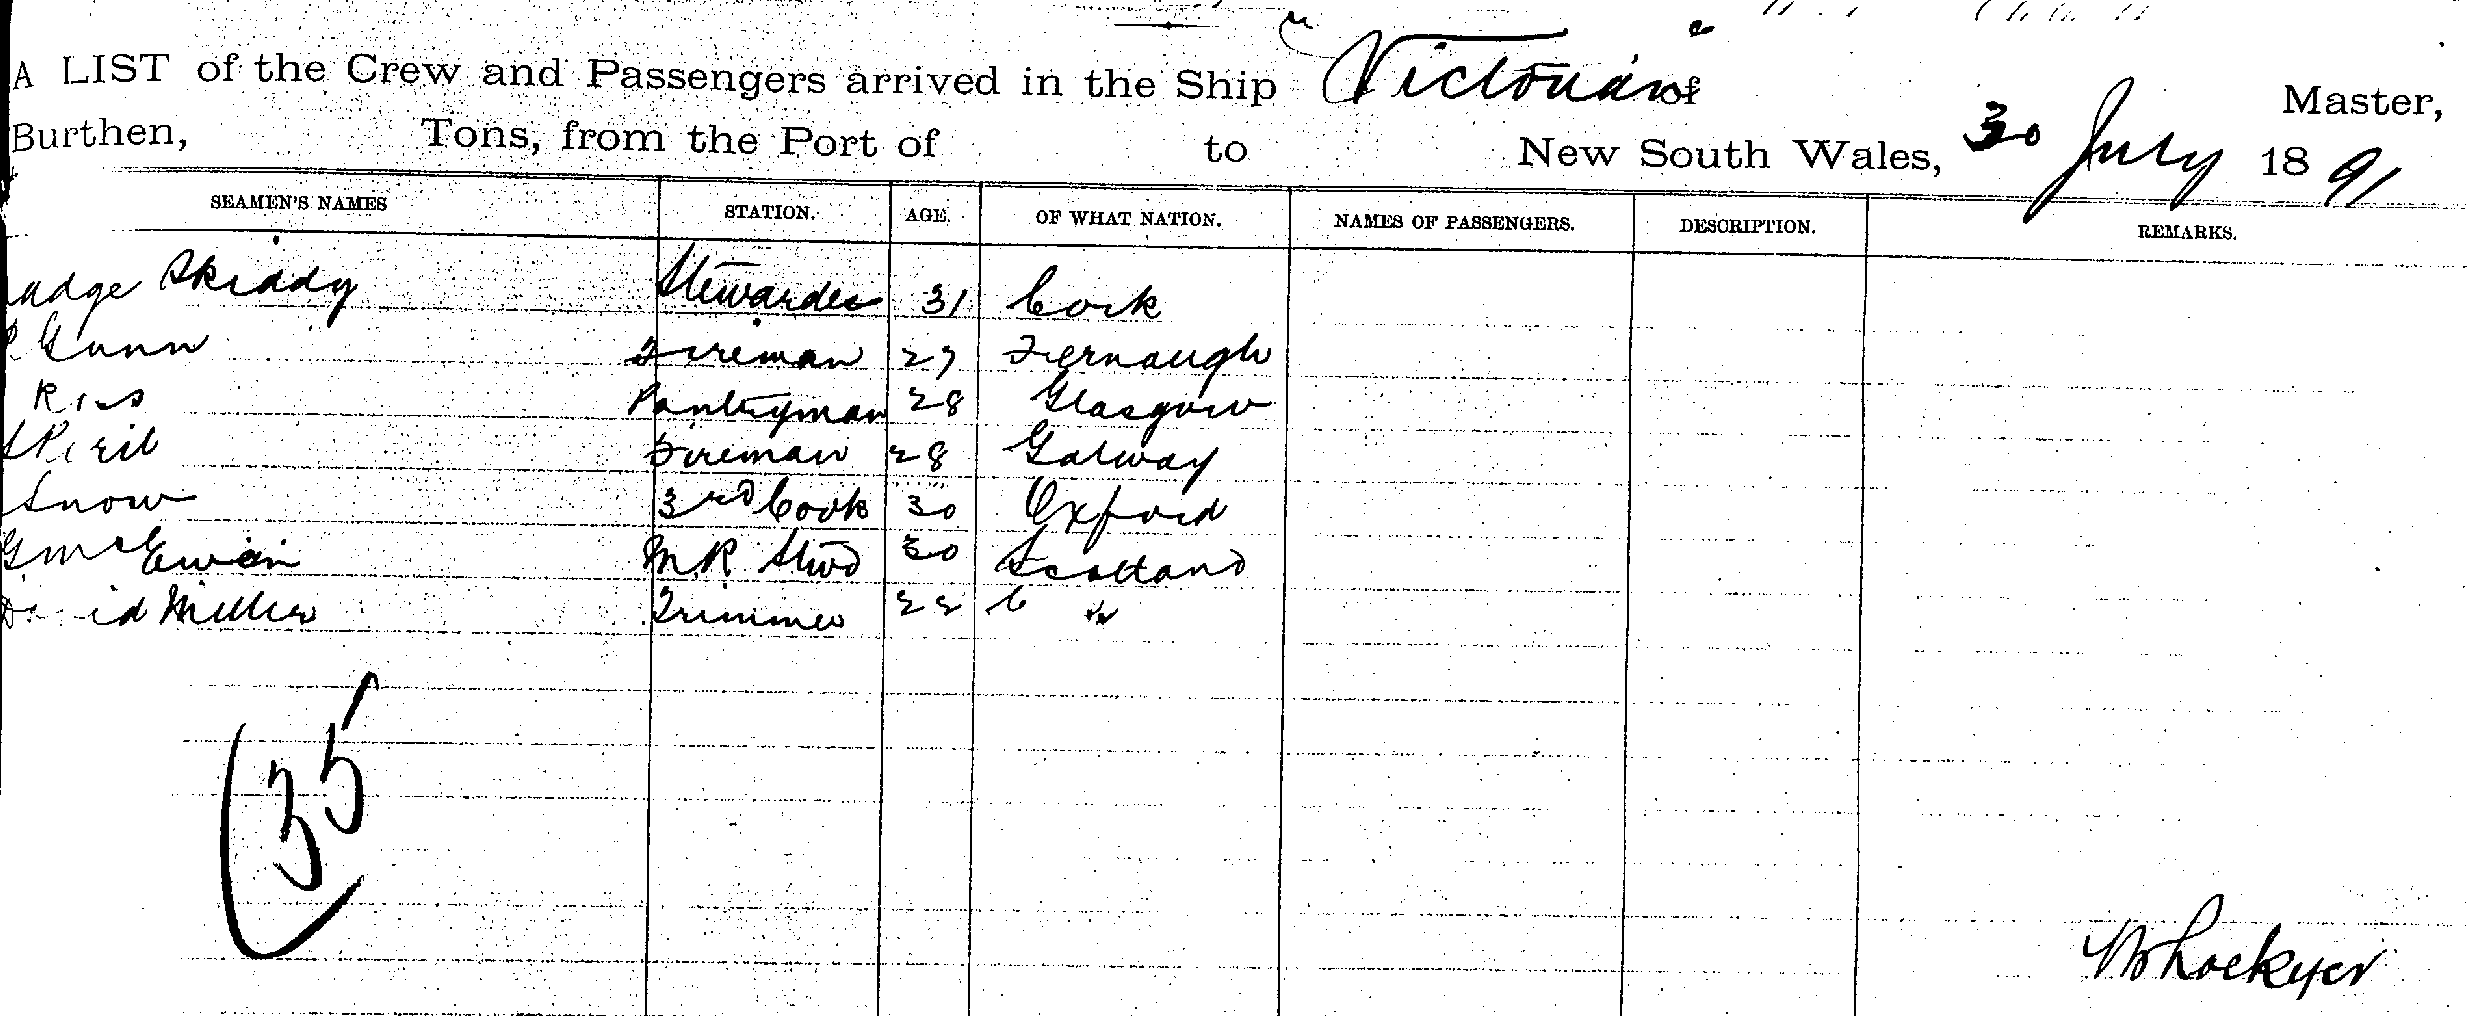 A LIST of the Crew and Passengers arrived in the Ship Victorian of Master,
Burthen, Tons, from the Port of to New South Wales, 30 July 1891
SEAMEN'S NAMES STATION. AGE. OF WHAT NATION. NAMES OF PASSENGERS. DESCRIPTION. REMARKS.
Skiddy Stewardess 31 Cork
Gunn Fireman 27 Fernaugh
Fireman 28 Galway
Pantryman 28 Glasgow
Snow 3rd Cook 30 Oxford
G McEwin M.R. Stwd 30 Scotland
Miller Trimmer 22
35
Lockyer